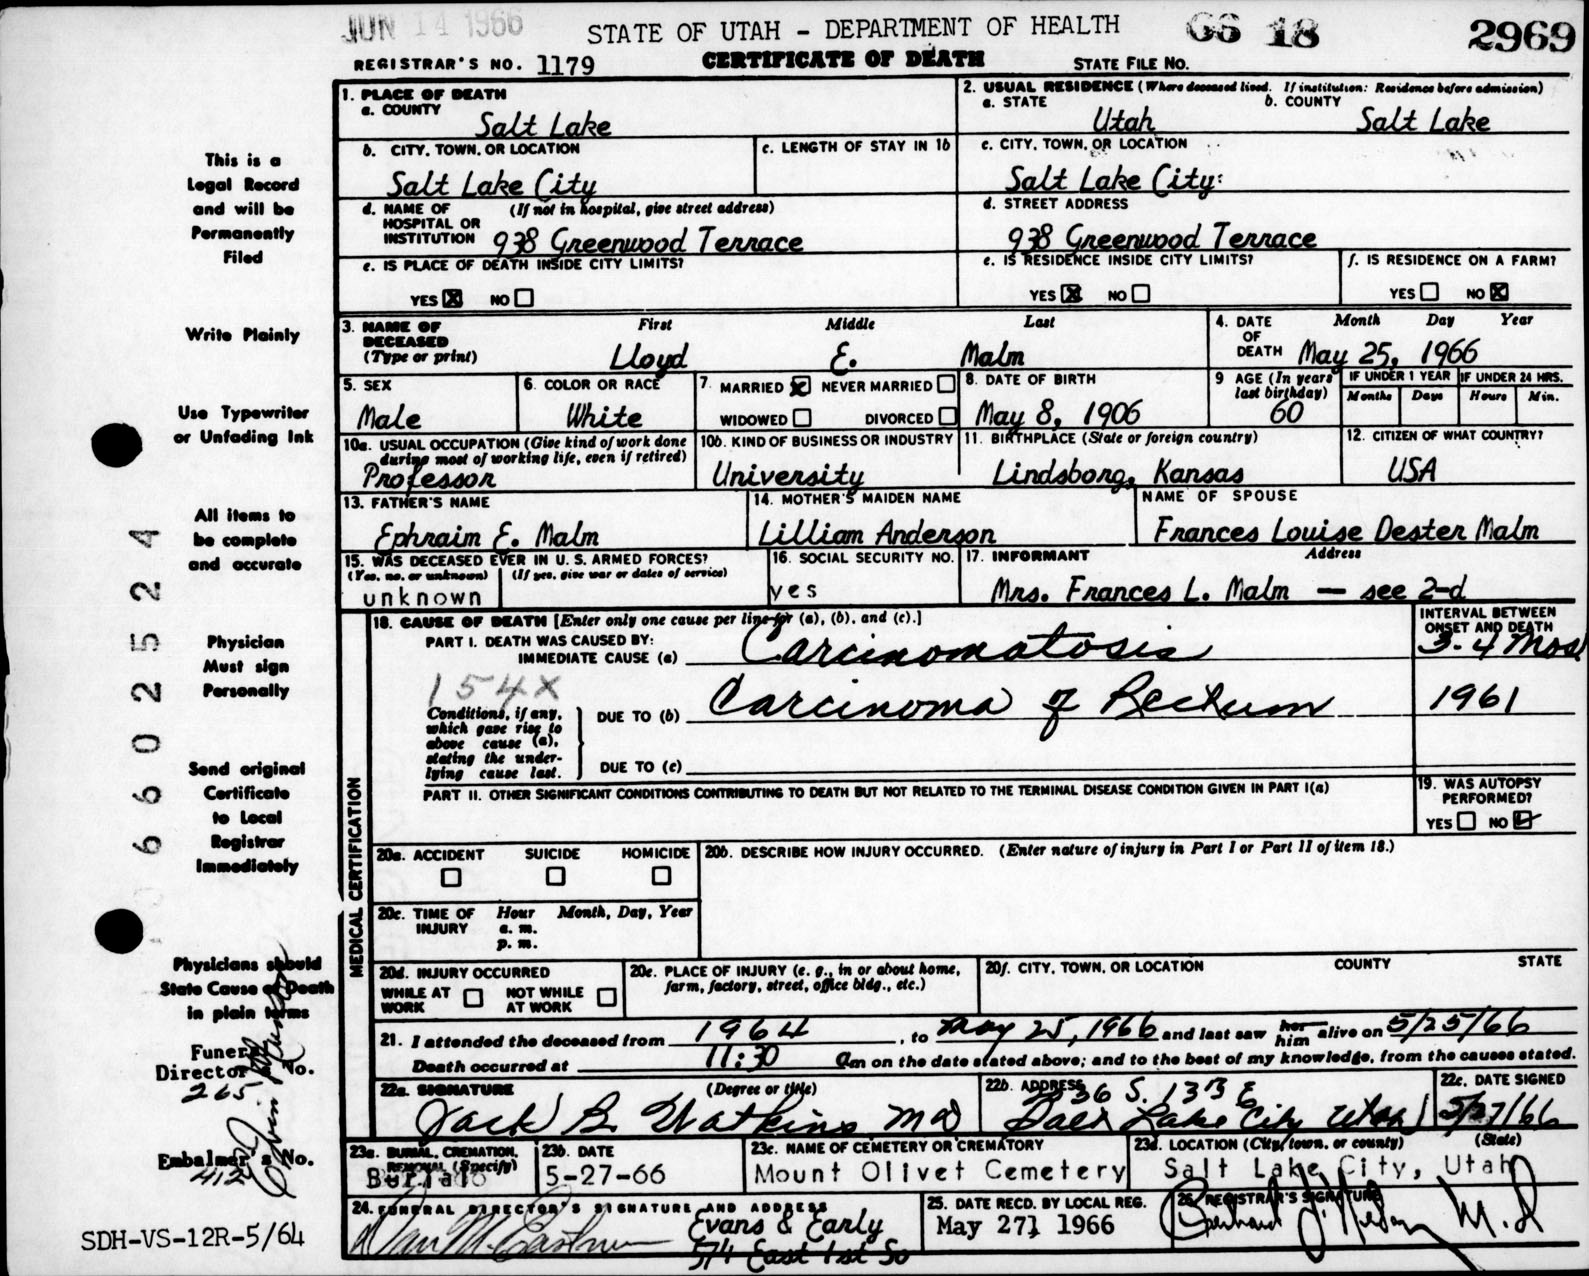 JUN 14 1966
STATE OF UTAH - DEPARTMENT OF HEALTH
66 18
2969
REGISTRAR'S NO. 1179
CERTIFICATE OF DEATH
STATE FILE NO.
1. PLACE OF DEATH
a. COUNTY
Salt Lake
2. USUAL RESIDENCE (Where deceased lived. If institution: Residence before admission)
a. STATE
Utah
b. COUNTY
Salt Lake
b. CITY, TOWN, OR LOCATION
Salt Lake City
c. LENGTH OF STAY IN 1b
c. CITY, TOWN, OR LOCATION
Salt Lake City
d. NAME OF HOSPITAL OR INSTITUTION (If not in hospital, give street address)
938 Greenwood Terrace
d. STREET ADDRESS
938 Greenwood Terrace
e. IS PLACE OF DEATH INSIDE CITY LIMITS?
YES ☒ NO ☐
e. IS RESIDENCE INSIDE CITY LIMITS?
YES ☒ NO ☐
f. IS RESIDENCE ON A FARM?
YES ☐ NO ☒
3. NAME OF DECEASED (Type or print)
First Middle Last
Lloyd E. Malm
4. DATE OF DEATH
Month Day Year
May 25, 1966
5. SEX
Male
6. COLOR OR RACE
White
7. MARRIED ☒ NEVER MARRIED ☐
WIDOWED ☐ DIVORCED ☐
8. DATE OF BIRTH
May 8, 1906
9 AGE (In years last birthday)
60
IF UNDER 1 YEAR
Months Days
IF UNDER 24 HRS.
Hours Min.
10a. USUAL OCCUPATION (Give kind of work done during most of working life, even if retired)
Professor
10b. KIND OF BUSINESS OR INDUSTRY
University
11. BIRTHPLACE (State or foreign country)
Lindsborg, Kansas
12. CITIZEN OF WHAT COUNTRY?
USA
13. FATHER'S NAME
Ephraim E. Malm
14. MOTHER'S MAIDEN NAME
Lilliam Anderson
NAME OF SPOUSE
Frances Louise Dester Malm
15. WAS DECEASED EVER IN U.S. ARMED FORCES?
(Yes, no, or unknown) (If yes, give war or dates of service)
unknown
16. SOCIAL SECURITY NO.
yes
17. INFORMANT Address
Mrs. Frances L. Malm — see 2-d
MEDICAL CERTIFICATION
18. CAUSE OF DEATH [Enter only one cause per line for (a), (b), and (c).]
PART I. DEATH WAS CAUSED BY:
IMMEDIATE CAUSE (a) Carcinomatosis
INTERVAL BETWEEN ONSET AND DEATH
3-4 Mos.
154X
Conditions, if any, which gave rise to above cause (a), stating the underlying cause last.
DUE TO (b) Carcinoma of Rectum
1961
DUE TO (c)
PART II. OTHER SIGNIFICANT CONDITIONS CONTRIBUTING TO DEATH BUT NOT RELATED TO THE TERMINAL DISEASE CONDITION GIVEN IN PART I(a)
19. WAS AUTOPSY PERFORMED?
YES ☐ NO ☑
20a. ACCIDENT SUICIDE HOMICIDE
20b. DESCRIBE HOW INJURY OCCURRED. (Enter nature of injury in Part I or Part II of item 18.)
20c. TIME OF INJURY
Hour Month, Day, Year
a. m.
p. m.
20d. INJURY OCCURRED
WHILE AT WORK ☐ NOT WHILE AT WORK ☐
20e. PLACE OF INJURY (e. g., in or about home, farm, factory, street, office bldg., etc.)
20f. CITY, TOWN, OR LOCATION COUNTY STATE
21. I attended the deceased from 1964, to May 25, 1966 and last saw her him alive on 5/25/66
Death occurred at 11:30 am on the date stated above; and to the best of my knowledge, from the causes stated.
22a. SIGNATURE (Degree or title)
Jack B. Watkins MD
22b. ADDRESS
36 S. 13th E
Salt Lake City Utah
22c. DATE SIGNED
5/27/66
23a. BURIAL, CREMATION, REMOVAL (Specify)
Burial
23b. DATE
5-27-66
23c. NAME OF CEMETERY OR CREMATORY
Mount Olivet Cemetery
23d. LOCATION (City, town, or county) (State)
Salt Lake City, Utah
24. FUNERAL DIRECTOR'S SIGNATURE AND ADDRESS
Evans & Early
574 East 1st So
25. DATE RECD. BY LOCAL REG.
May 27, 1966
26. REGISTRAR'S SIGNATURE
M.D
This is a
Legal Record
and will be
Permanently
Filed
Write Plainly
Use Typewriter
or Unfading Ink
All items to
be complete
and accurate
Physician
Must sign
Personally
Send original
Certificate
to Local
Registrar
Immediately
Physicians should
State Cause of Death
in plain terms
Funeral
Director No.
265
Embalmer's No.
412
6602524
SDH-VS-12R-5/64